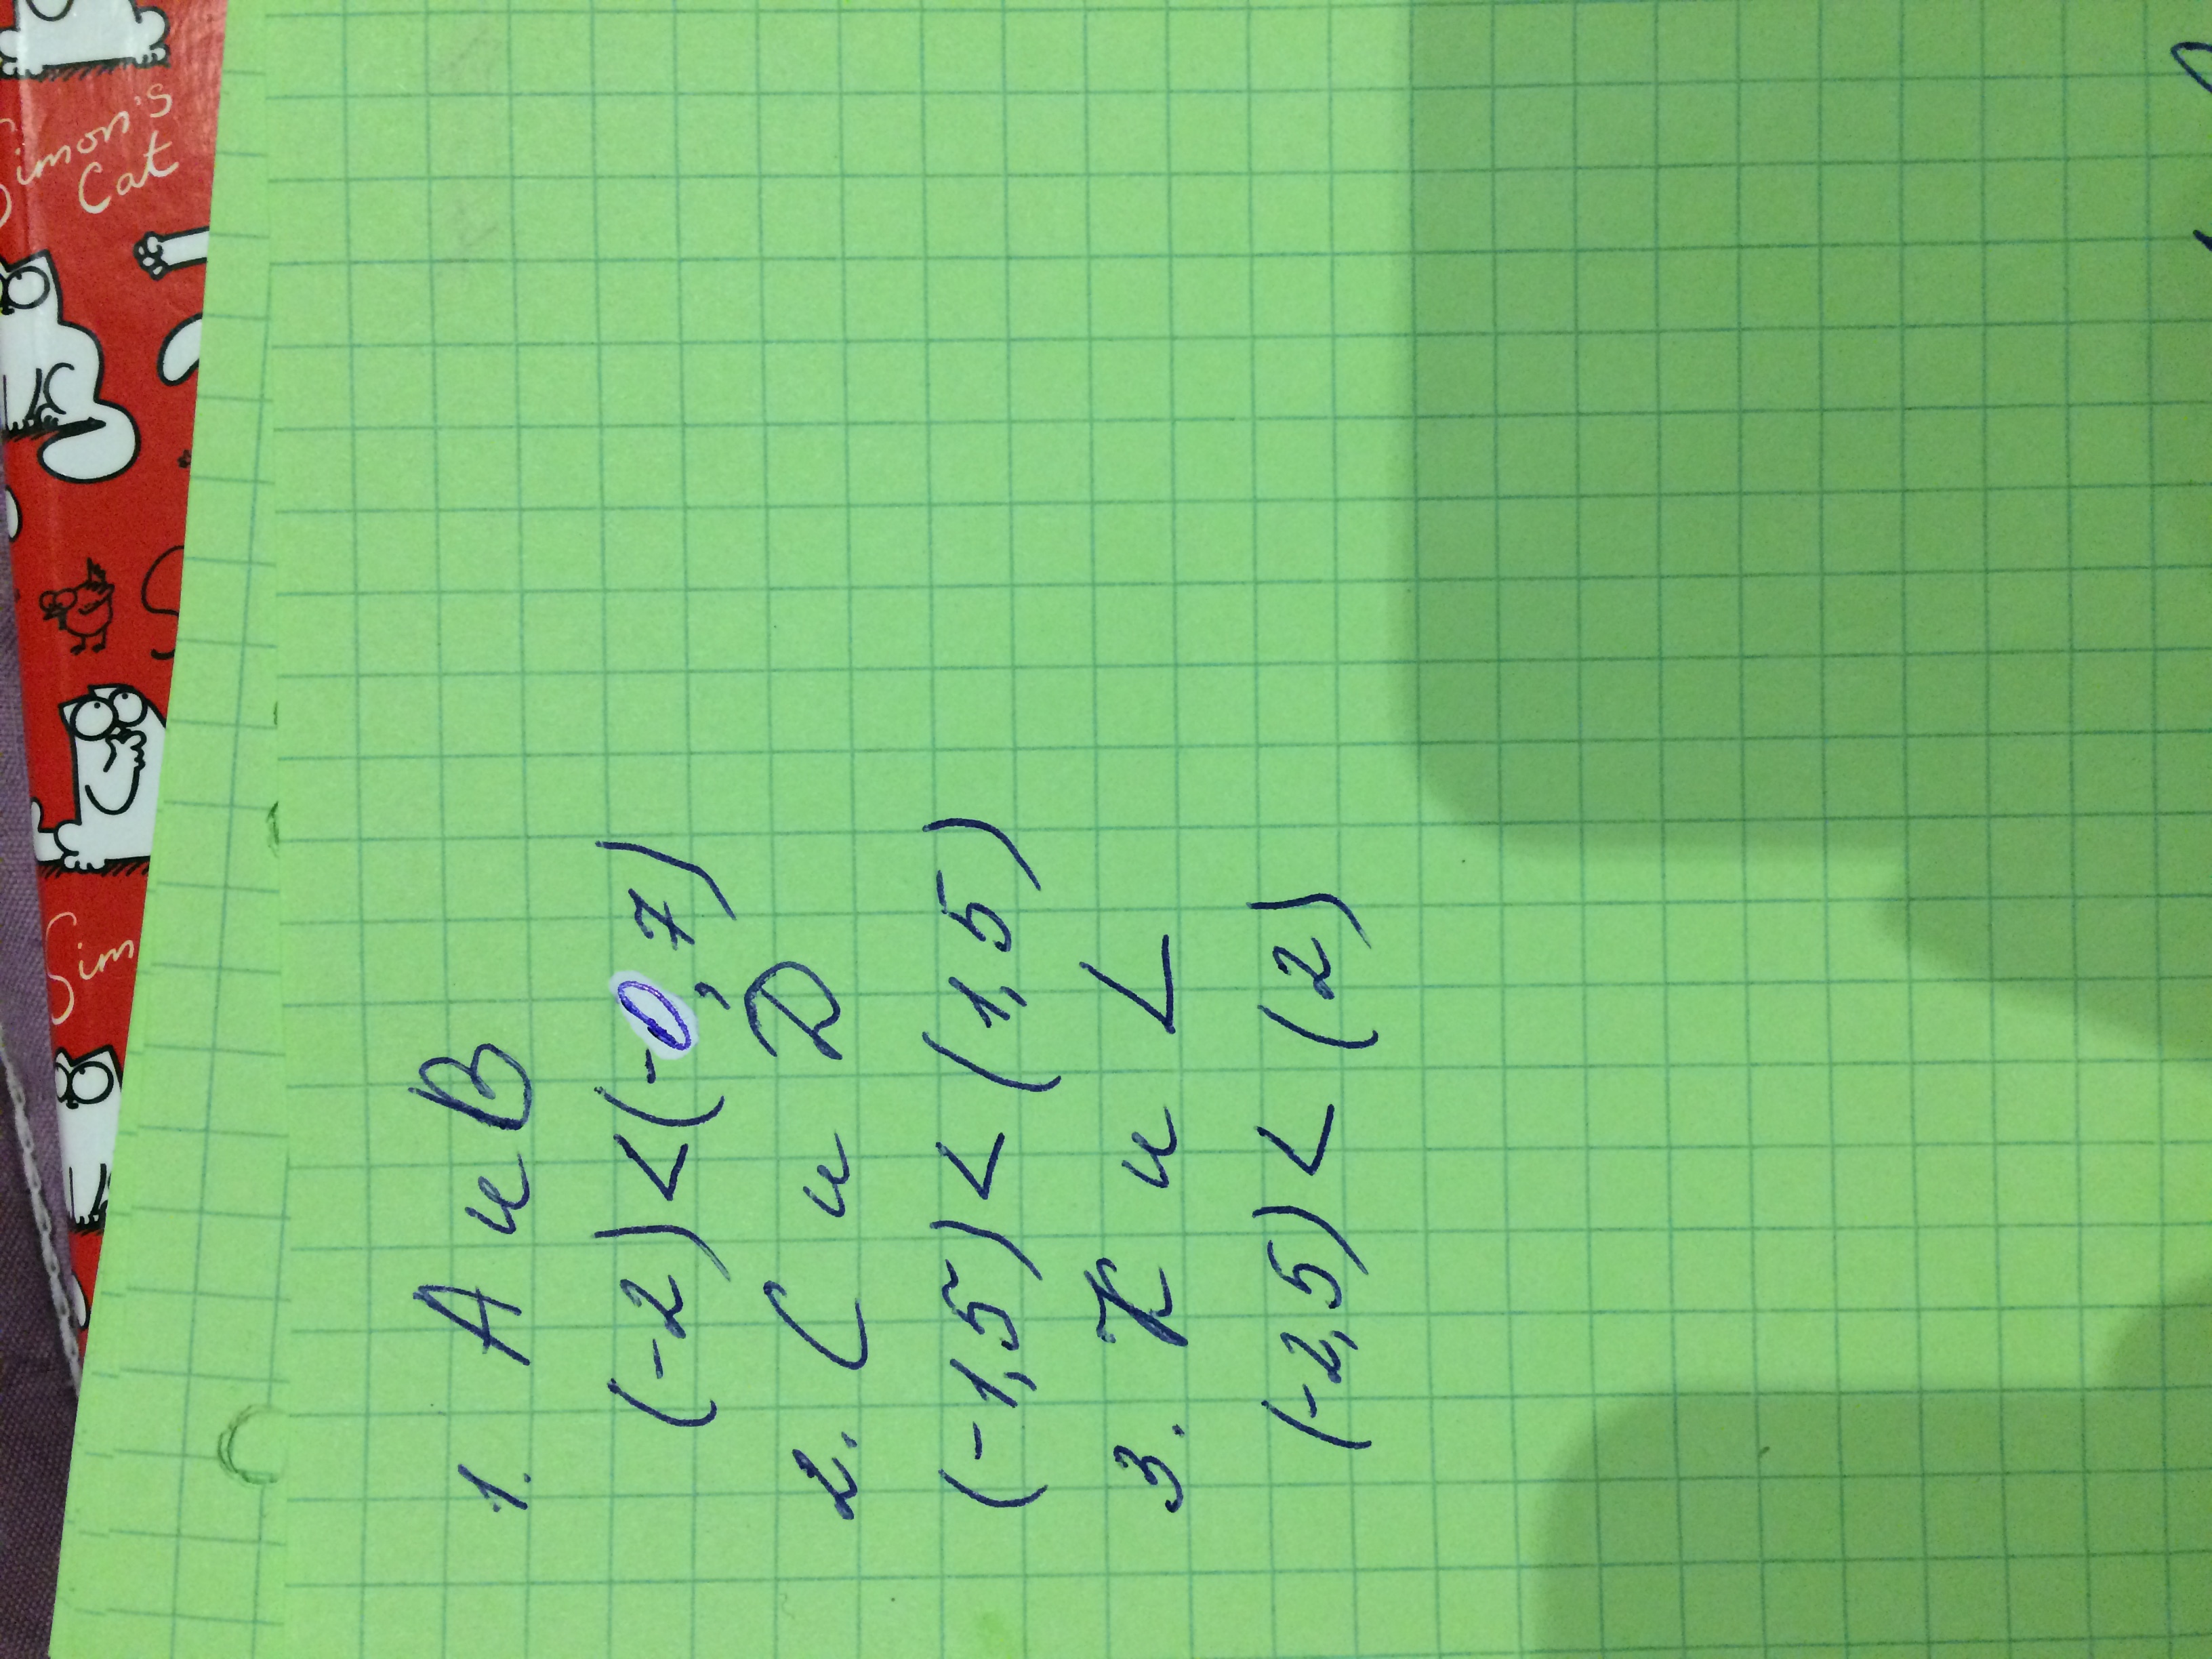 1. А и В
(-2) < (-0,7)
2. С и D
(-1,5) < (1,5)
3. К и L
(-2,5) < (2)
Simon's
Cat
Sim